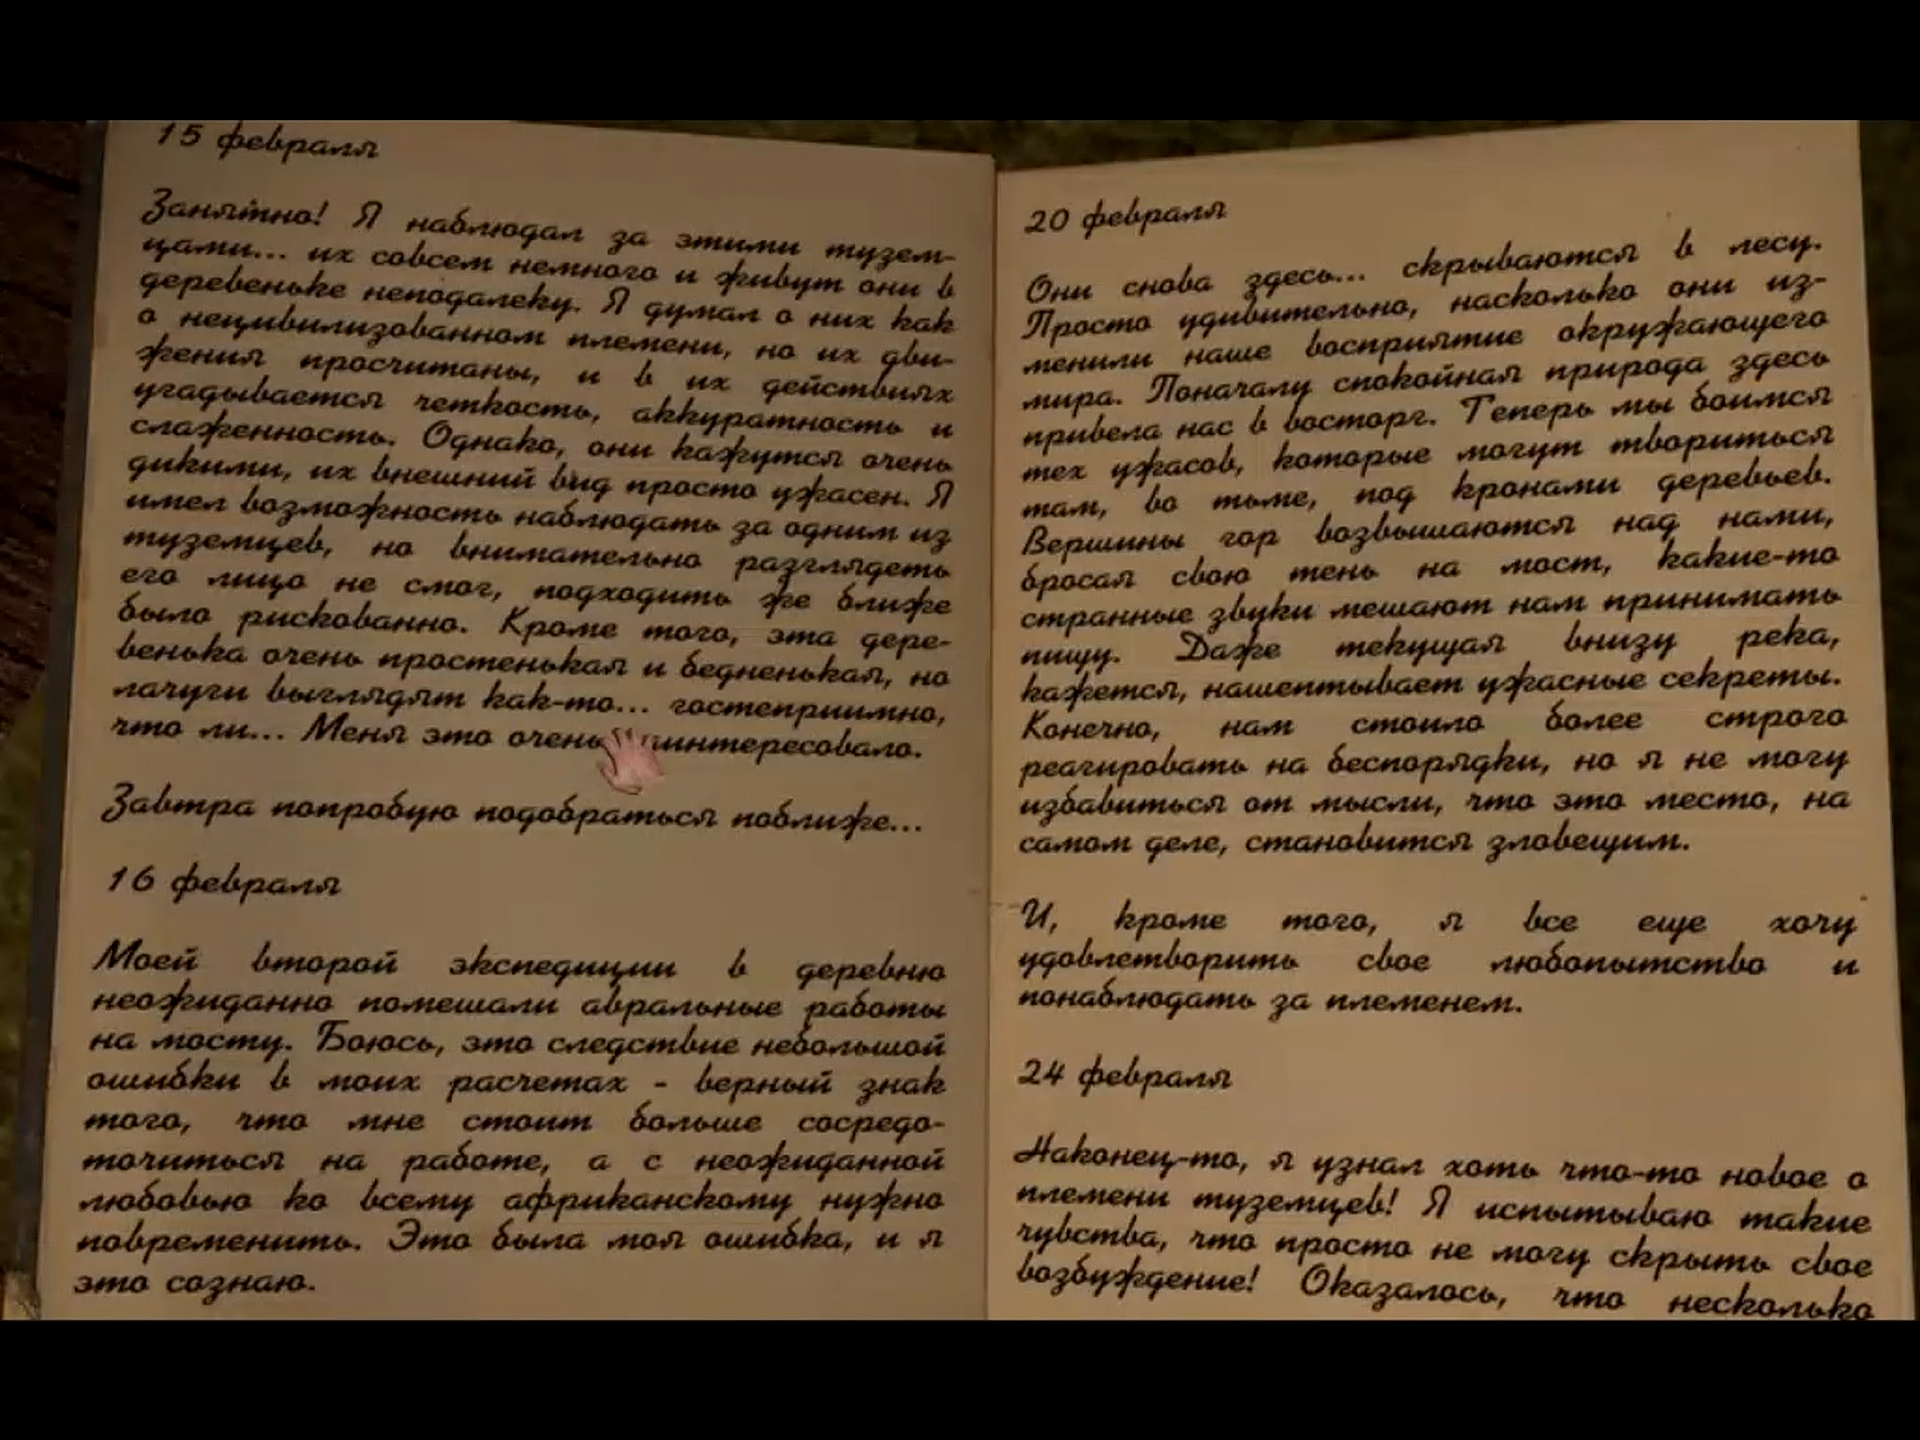 15 февраля
Занятно! Я наблюдал за этими тузем-
цами... их совсем немного и живут они в
деревеньке неподалеку. Я думал о них как
о нецивилизованном племени, но их дви-
жения просчитаны, и в их действиях
угадывается четкость, аккуратность и
слаженность. Однако, они кажутся очень
дикими, их внешний вид просто ужасен. Я
имел возможность наблюдать за одним из
туземцев, но внимательно разглядеть
его лицо не смог, подходить же ближе
было рискованно. Кроме того, эта дере-
венька очень простенькая и бедненькая, но
лачуги выглядят как-то... гостеприимно,
что ли... Меня это очень
Завтра попробую подобраться поближе...
16 февраля
Моей второй экспедиции в деревню
неожиданно помешали авральные работы
на мосту. Боюсь, это следствие небольшой
ошибки в моих расчетах - верный знак
того, что мне стоит больше сосредо-
точиться на работе, а с неожиданной
любовью ко всему африканскому нужно
повременить. Это была моя ошибка, и я
это сознаю.
20 февраля
Они снова здесь... скрываются в лесу.
Просто удивительно, насколько они из-
менили наше восприятие окружающего
мира. Поначалу спокойная природа здесь
привела нас в восторг. Теперь мы боимся
тех ужасов, которые могут твориться
там, во тьме, под кронами деревьев.
Вершины гор возвышаются над нами,
бросая свою тень на мост, какие-то
странные звуки мешают нам принимать
пищу. Даже текущая внизу река,
кажется, нашептывает ужасные секреты.
Конечно, нам стоило более строго
реагировать на беспорядки, но я не могу
избавиться от мысли, что это место, на
самом деле, становится зловещим.
И, кроме того, я все еще хочу
удовлетворить свое любопытство и
понаблюдать за племенем.
24 февраля
Наконец-то, я узнал хоть что-то новое о
племени туземцев! Я испытываю такие
чувства, что просто не могу скрыть свое
возбуждение! Оказалось, что несколько